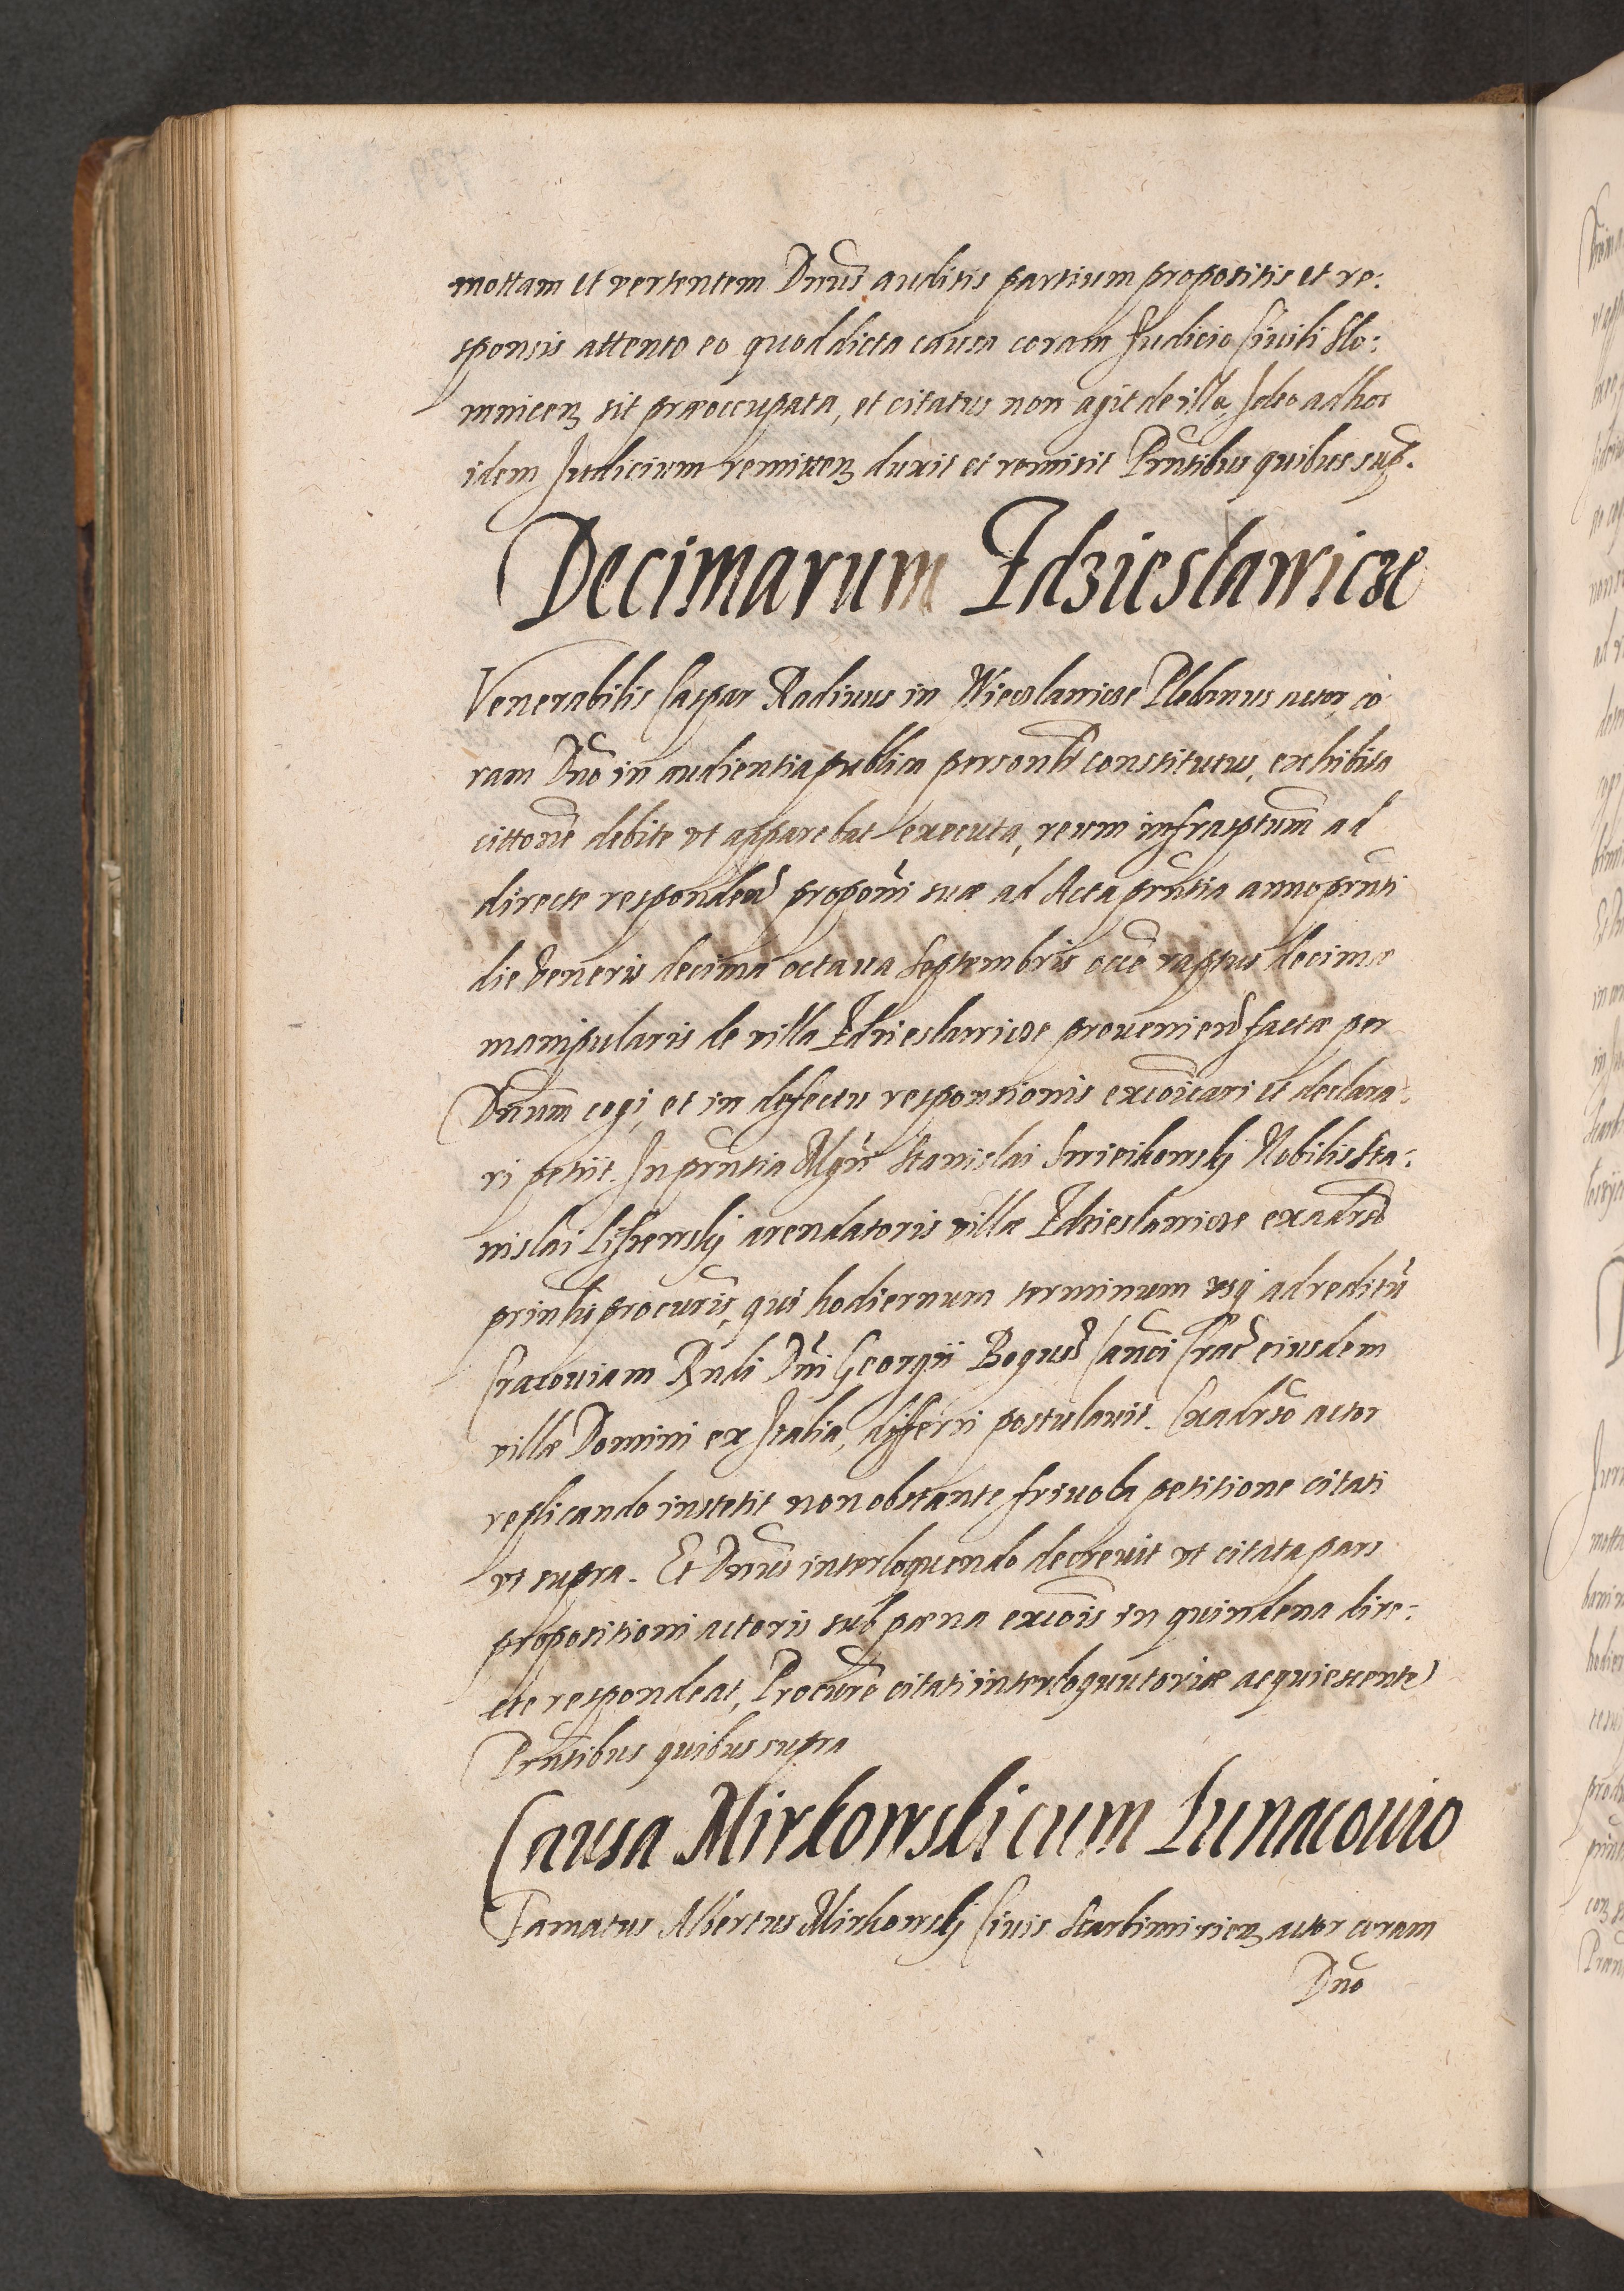 mottam et vertentem Dnus auditis partium propositis et re:
sponsis attento eo quod dicta causa coram Judicio Ciuili Slo:
mnicen sit præoccupata, et citatus non agit de illa, Ideo ad hoc
idem Judicium remitten duxit et remisit Pntibus quibus sup.
Decimarum Idzieslawicze
Venerabilis Caspar Radiuus in Wieclawicze Plebanus actor, co
ram Dno in audientia publica personlr constitutus, exhibita
cittone debite vt apparebat executa, reum infrasptum ad
directe respondend proponi suæ ad Acta pntia anno pnti
die Veneris decima octaua Septembris occe raptus decimæ
manipularis de villa Idzieslawicze prouenien factæ per
Dnum cogi, et in defectu responsionis excoicari et declara:
ri petiit. In pntia Mgri Stanislai Swieikowskij Nobilis Sta:
nislai Lissewskij arendatoris villæ Idzieslawicze ex adrso
prinlis procuris, qui hodiernum terminum vsq ad reditu
Cracouiam Rndi Dni Georgii Bogus Canci Crac eiusdem
villæ Domini ex Italia, differri postulauit. Ex adrso actor
replicando institit non obstante friuola petitione citati
vt supra. Et Dnus interloquendo decreuit vt citata pars
propositioni actoris sub pæna excois in quindena dire:
cte respondeat, Procure citati interloquutoriæ acquiescente
Pntibus quibus supra
Causa Mirkowski cum Lunaconio
Famatus Albertus Mirkowskij Ciuis Skarbimirien actor coram
Dno